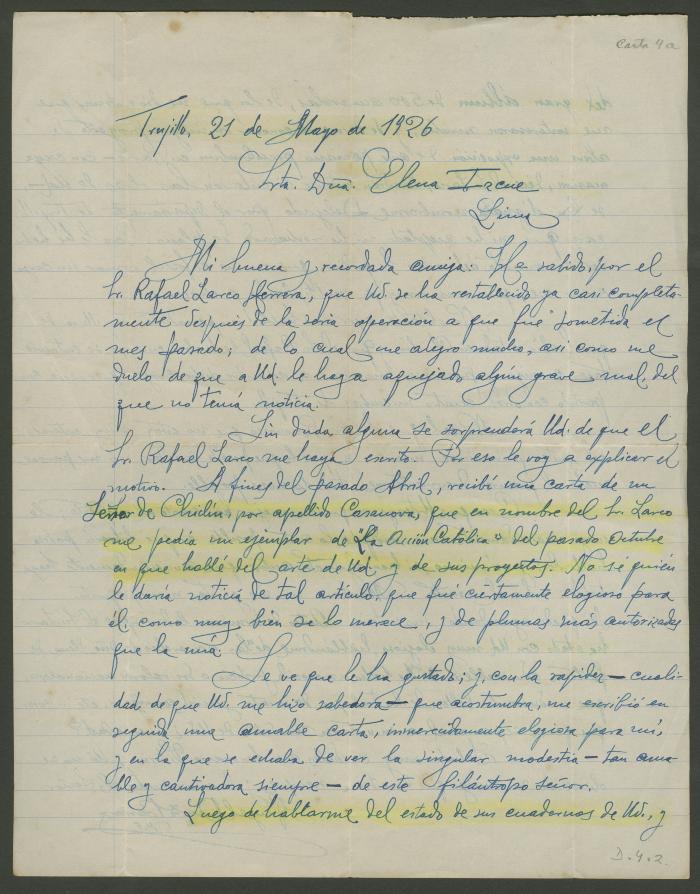 Carta 4a
Trujillo, 21 de Mayo de 1926
Srta. Dña. Elena Izcue
Lima
Mi buena y recordada amiga: He sabido, por el
Sr. Rafael Larco Herrera, que Ud. se ha restablecido ya casi completa-
mente después de la seria operación a que fué sometida el
mes pasado; de lo cual me alegro mucho, asi como me
duelo de que a Ud. le haya aquejado algún grave mal, del
que no tenía noticia.
Sin duda alguna se sorprenderá Ud. de que el
Sr. Rafael Larco me haya escrito. Por eso le voy a explicar el
motivo. A fines del pasado Abril, recibí una carta de un
Señor de Chiclín, por apellido Casanova, que en nombre del Sr. Larco
me pedía un ejemplar de "La Acción Católica" del pasado Octubre
en que hablé del arte de Ud. y de sus proyectos. No sé quién
le daría noticia de tal artículo, que fué ciertamente elogioso para
él, como muy bien se lo merece, y de plumas más autorizadas
que la mía.
Se ve que le ha gustado; y, con la rapidez — cuali-
dad de que Ud. me hizo sabedora — que acostumbra, me escribió en
seguida una amable carta, inmerecidamente elogiosa para mí,
y en la que se echaba de ver la singular modestia — tan ama-
ble y cautivadora siempre — de este filántropo señor.
Luego de hablarme del estado de sus cuadernos de Ud., y
D.4.2.